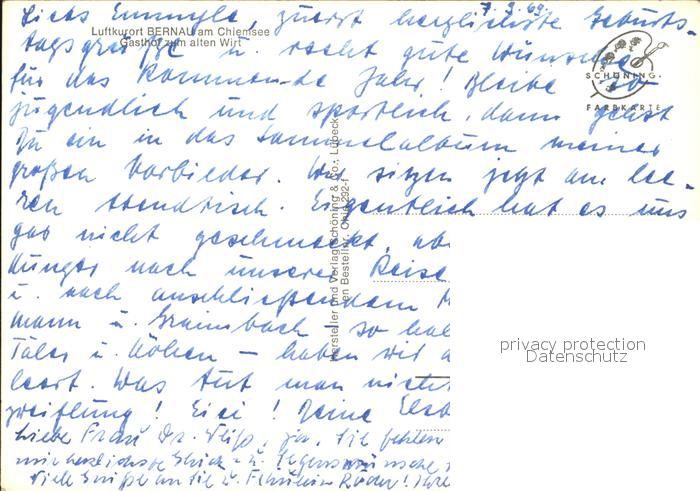 7. 9. 69.
Luftkurort BERNAU am Chiemsee
Gasthof zum alten Wirt
SCHÖNING
FARBKARTE
zuerst herzlichste Geburts-
tagsgrüße u. recht gute Wünsche
für das kommende Jahr! Bleibe so
jugendlich und sportlich, dann gehst
Du ein in das Sammelalbum meiner
großen Vorbilder. Wir sitzen jetzt am lee-
ren Abendtisch. Eigentlich hat es uns
gar nicht geschmeckt, ab
Hunger nach unserer Reise
u. nach anschließendem
mann u. so
Täler u. Höhen – haben wir
leert. Was tut man nicht
zweiflung! Deine
Liebe Frau Dr. Sie fehlen
mir herzlichste Glück- u. Segenswünsche
Viele Grüße an Sie u. Fräulein
Hersteller und Verlag: Schöning & Co., Lübeck
privacy protection
Datenschutz